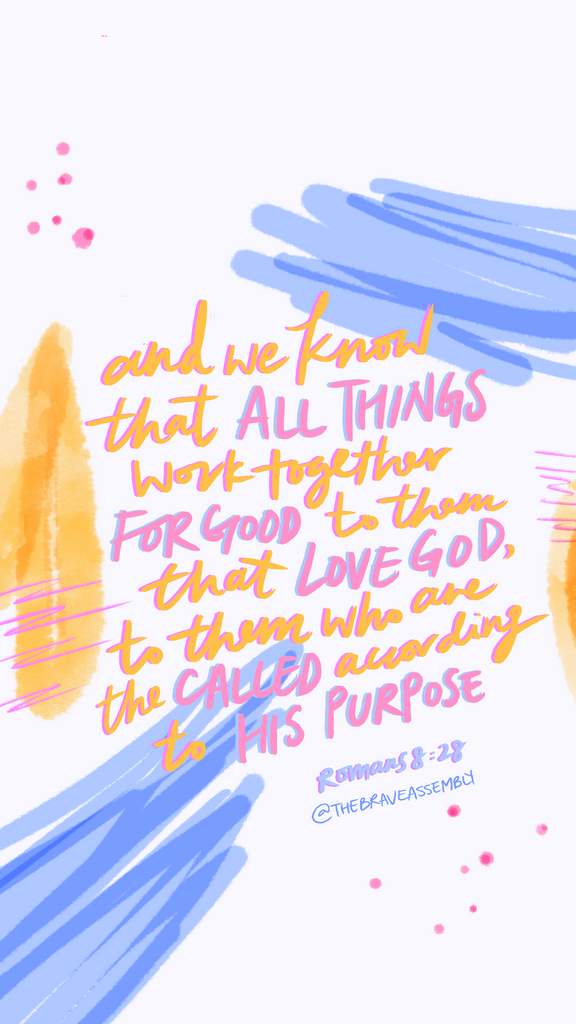 and we know
that ALL THINGS
work together
FOR GOOD to them
that LOVE GOD,
to them who are
the CALLED according
to HIS PURPOSE
Romans 8:28
@THEBRAVEASSEMBLY